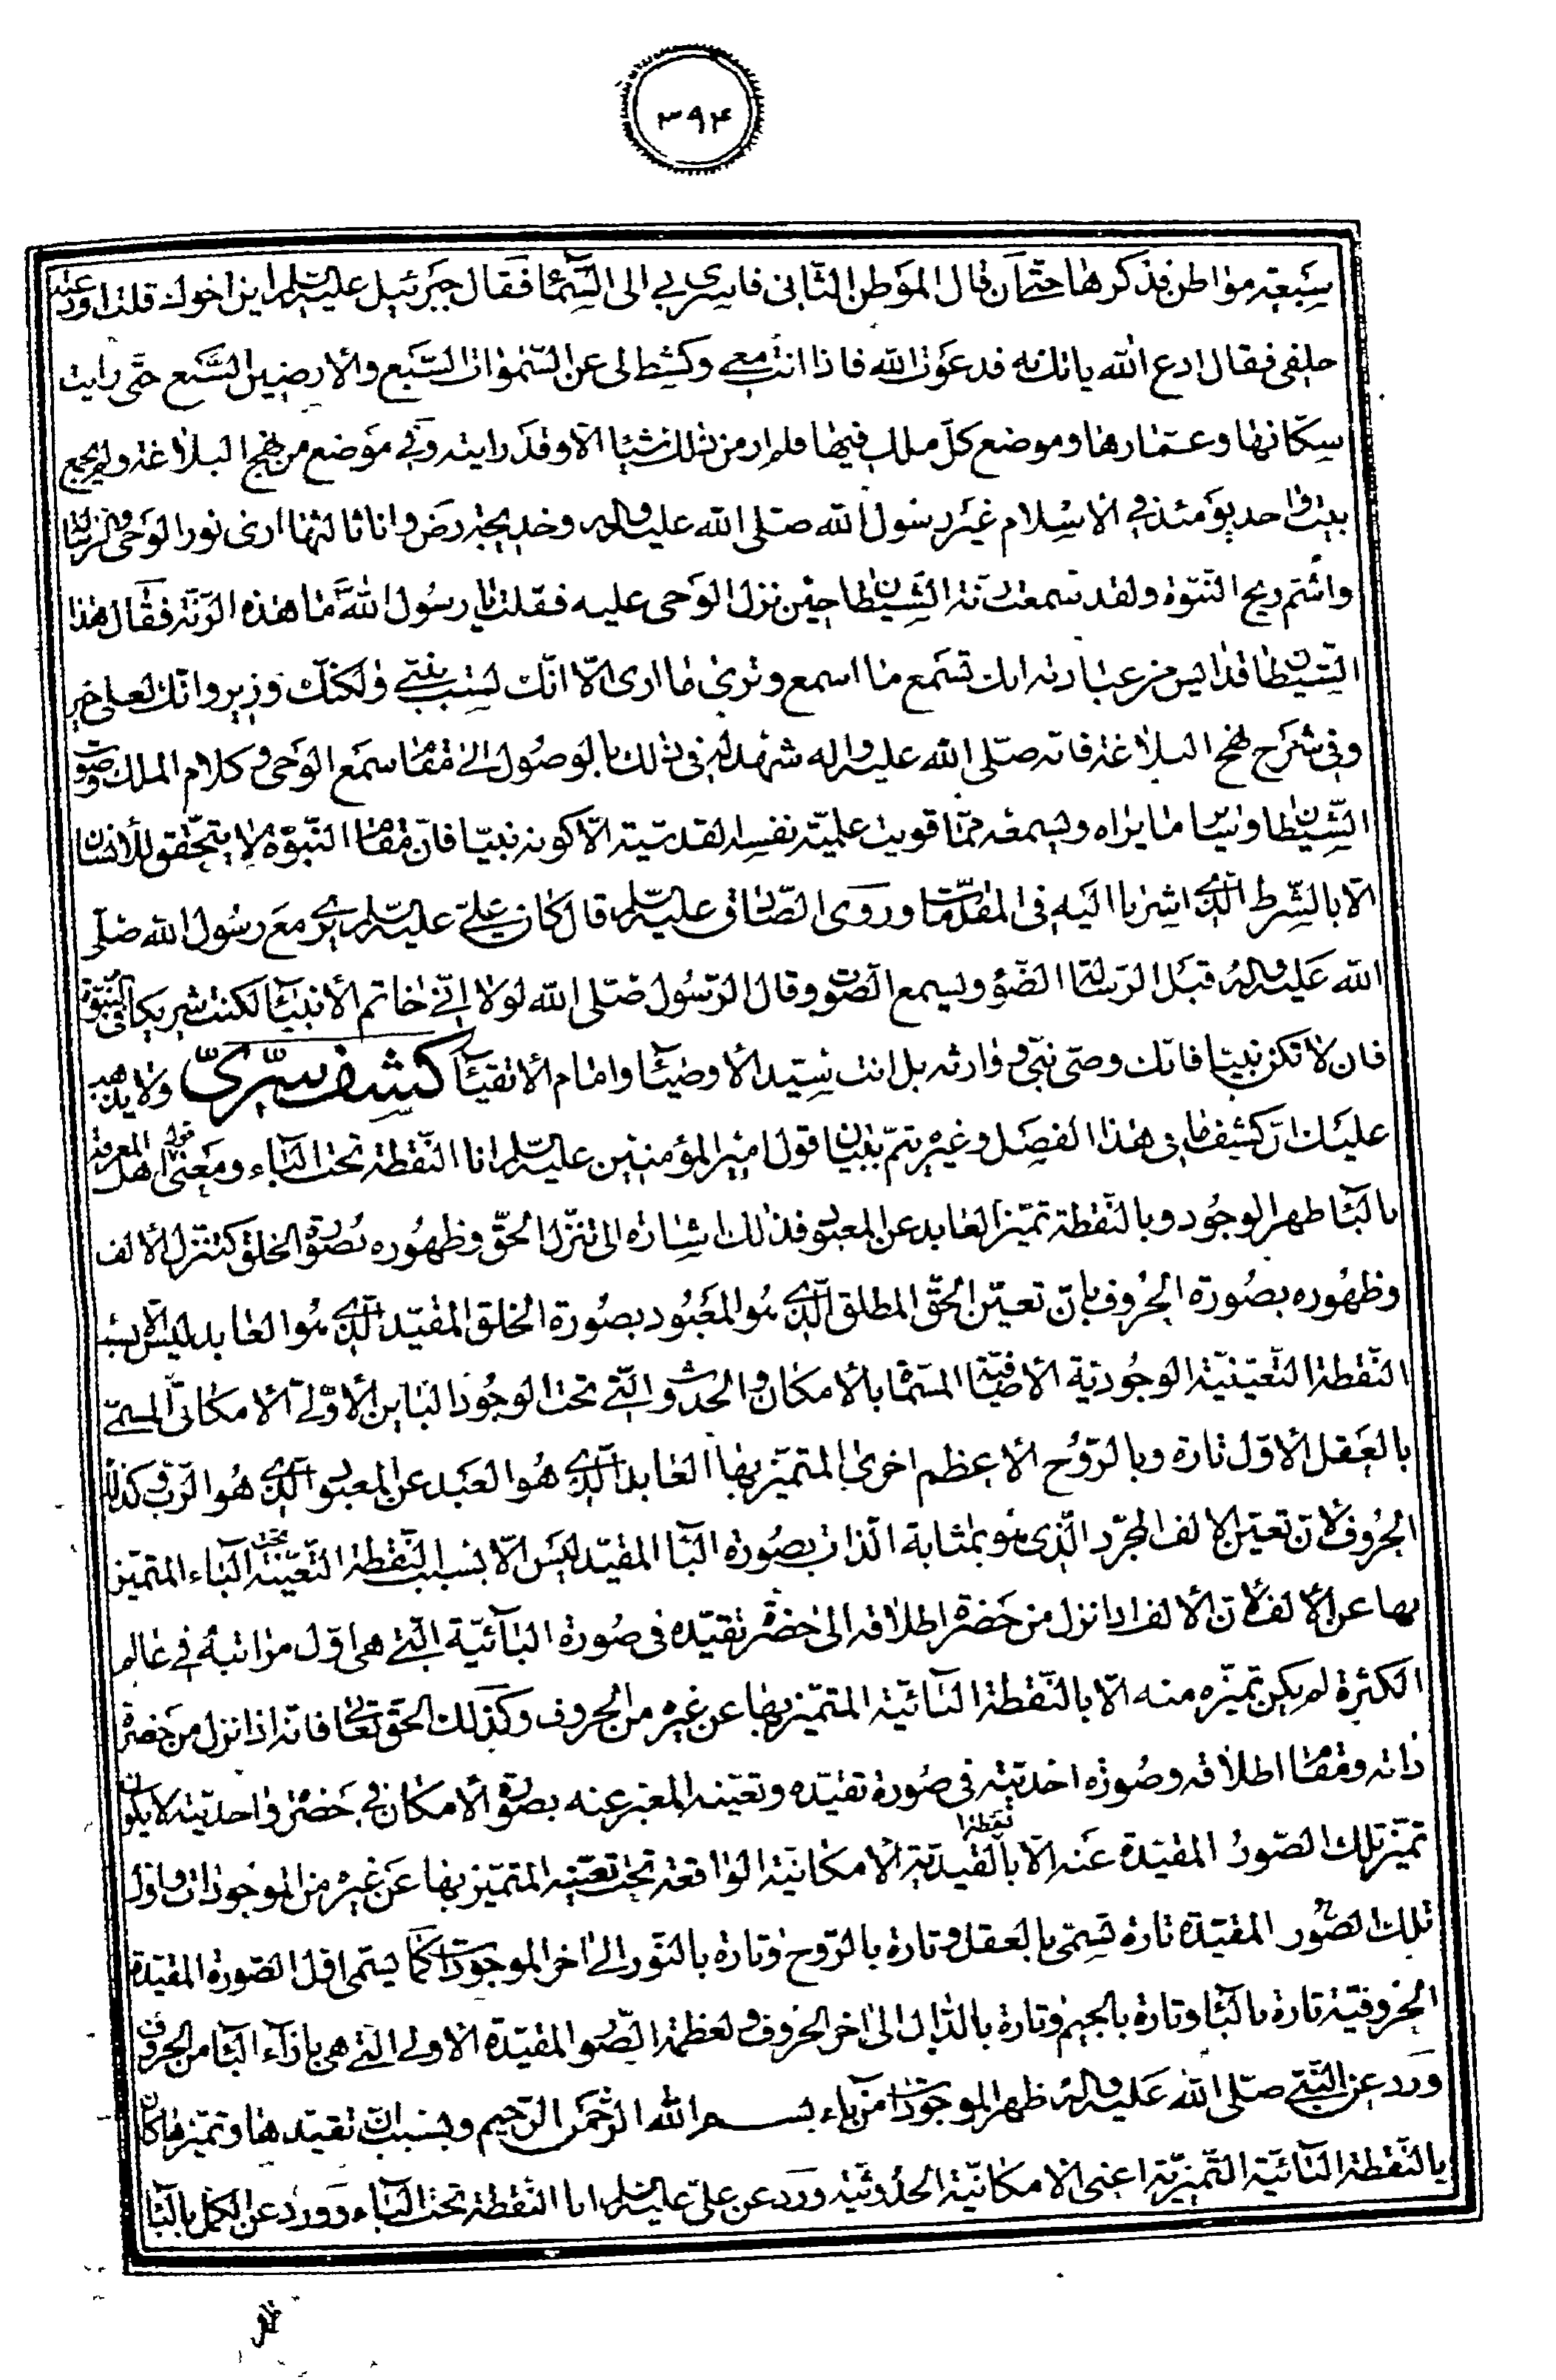 ٣٩۴
سبعة مواطن فذكرها حتى ان قال الموطن الثانى فاسرى بى الى السماء فقال جبرئيل عليه السلم اين اخوك قلت اودعته
خلفى فقال ادع الله ياتك به فدعوت الله فاذا انت معى وكشط لى عن السموات السبع والارضين السبع حتى رايت
سكانها وعمارها وموضع كل ملك فيها فلم ار من ذلك شيئا الا وقد رايته وفى موضع من نهج البلاغة ولم يجمع
بيت واحد يومئذ فى الاسلام غير رسول الله صلى الله عليه واله وخديجة رض وانا ثالثهما ارى نور الوحى والرسالة
واشم ريح النبوة ولقد سمعت رنة الشيطان حين نزل الوحى عليه فقلت يا رسول الله ما هذه الرنة فقال هذا
الشيطان قد ايس من عبادته انك تسمع ما اسمع وترى ما ارى الا انك لست بنبى ولكنك وزير وانك لعلى خير
وفى شرح نهج البلاغة فانه صلى الله عليه واله شهد له فى ذلك بالوصول الى مقام سمع الوحى وكلام الملك وصوت
الشيطان وساير ما يراه ويسمعه مما قويت عليه نفسه القدسية الا كونه نبيا فان مقام النبوة لا يتحقق للانسان
الا بالشرط الذى اشرنا اليه فى المقدمات وروى الصادق عليه السلم قال كان على عليه السلم يرى مع رسول الله صلى
الله عليه واله قبل الرسالة الضوء ويسمع الصوت وقال الرسول صلى الله لولا انى خاتم الانبياء لكنت شريكا فى النبوة
فان لا تكن نبيا فانك وصى نبى ووارثه بل انت سيد الاوصياء وامام الاتقياء كشف سرى ولا يذهب
عليك ان كشف ما فى هذا الفصل وغيره يتم ببيان قول امير المؤمنين عليه السلم انا النقطة تحت الباء ومعنى قول اهل المعرفة
بالباء ظهر الوجود وبالنقطة تميز العابد عن المعبود فذلك اشارة الى تنزل الحق وظهوره بصورة الخلق كتنزل الالف
وظهوره بصورة الحروف بان تعين الحق المطلق الذى هو المعبود بصورة الخلق المقيد الذى هو العابد ليس الا بسبب
النقطة التعينية الوجودية الاضافية المسماة بالامكان والحدوث والتى تحت الوجود الباين الاولى الامكانى المسمى
بالعقل الاول تارة وبالروح الاعظم اخرى المتميز بها العابد الذى هو العبد عن المعبود الذى هو الرب وكذلك
الحروف لان تعين الالف المجرد الذى هو بمثابة الذات بصورة الباء المقيد ليس الا بسبب النقطة التعينية تحت الباء المتميز
بها عن الالف لان الالف اذا نزل من حضرة اطلاقه الى حضرة تقيده فى صورة البائية التى هى اول مراتبه فى عالم
الكثرة لم يكن تميزه منه الا بالنقطة البائية المتميز بها عن غيره من الحروف وكذلك الحق تعالى فانه اذا نزل من حضرة
ذاته ومقام اطلاقه وصورة احديته فى صورة تقيده وتعينه المعبر عنه بصورة الامكان فى حضرة واحديته لا يكون
تميز تلك الصور المقيدة عنه الا بالنقطة القيدية الامكانية الواقعة تحت تعينه المتميز بها عن غيره من الموجودات واول
تلك الصور المقيدة تارة تسمى بالعقل وتارة بالروح وتارة بالنور الى اخر الموجودات كما يسمى اول الصورة المقيدة
الحروفية تارة بالباء وتارة بالجيم وتارة بالدال الى اخر الحروف ولعظمة الصور المقيدة الاولى التى هى بازاء الباء من الحروف
ورد عن النبى صلى الله عليه واله ظهر الموجودات من باء بسم الله الرحمن الرحيم وبسبب ان تقيدها وتميزها كان
بالنقطة البائية التميزية اعنى الامكانية الحدوثية ورد عن على عليه السلم انا النقطة تحت الباء وورد عن الكمل بالباء